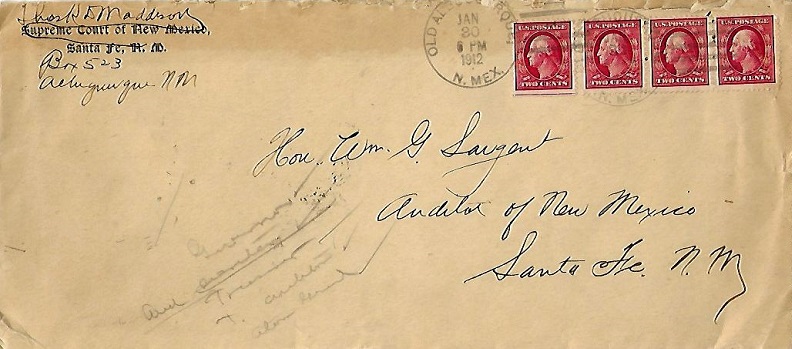 Thos. K. D. Maddison
Supreme Court of New Mexico,
Santa Fe, N. M.
Box 523
Albuquerque NM
OLD ALBUQUERQUE
JAN
30
6 PM
1912
N. MEX.
U.S. POSTAGE
TWO CENTS
U.S. POSTAGE
TWO CENTS
U.S. POSTAGE
TWO CENTS
U.S. POSTAGE
TWO CENTS
N. MEX.
Hon. Wm. G. Sargent
Auditor of New Mexico
Santa Fe. N. M
Governor
and